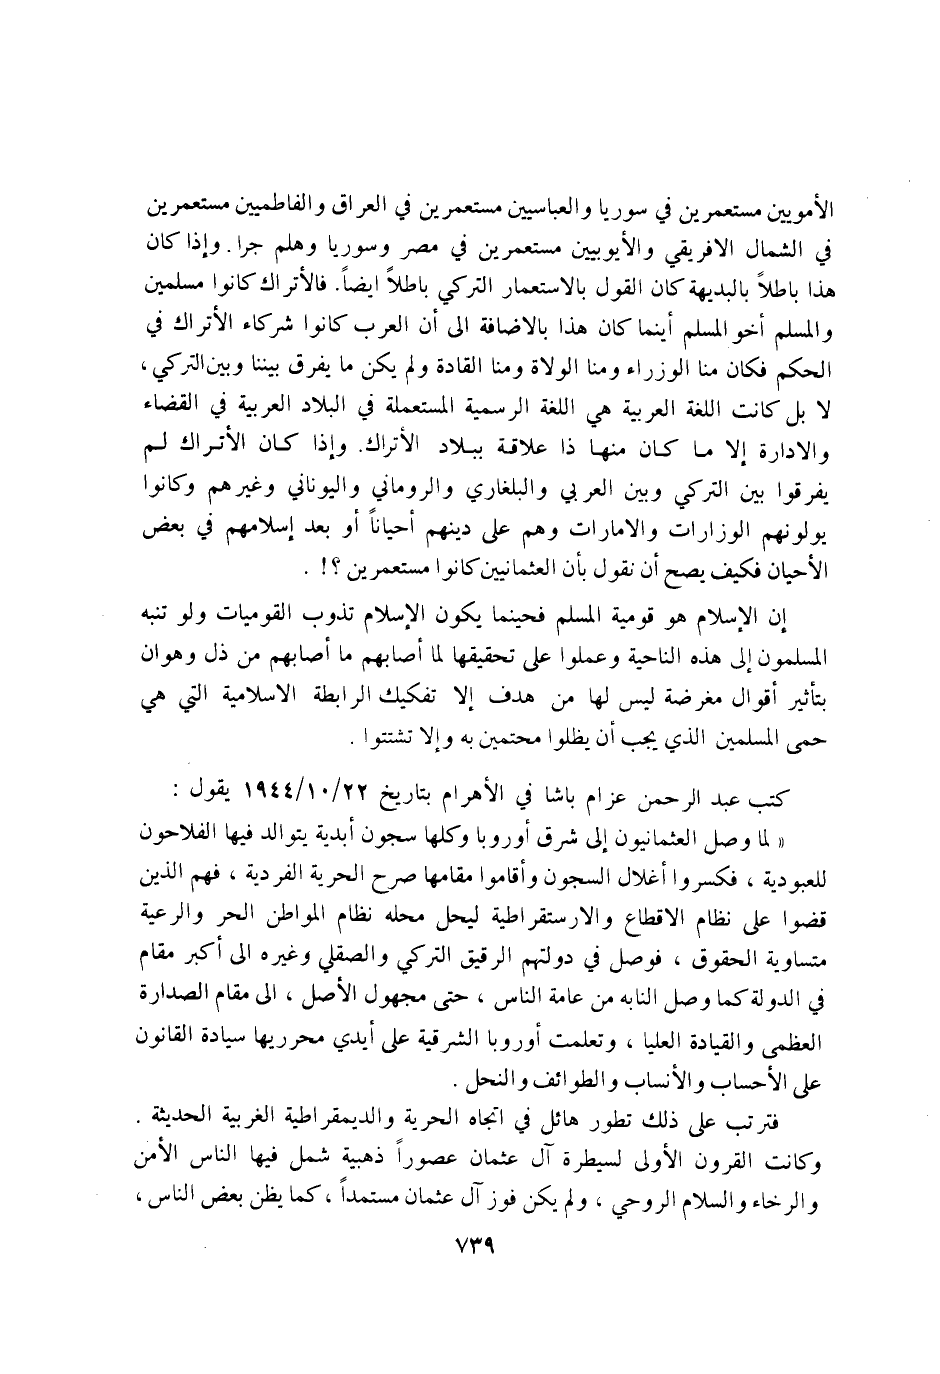 الأمويين مستعمرين في سوريا والعباسيين مستعمرين في العراق والفاطميين مستعمرين
في الشمال الافريقي والأيوبيين مستعمرين في مصر وسوريا وهلم جرا. وإذا كان
هذا باطلاً بالبديهة كان القول بالاستعمار التركي باطلاً ايضاً. فالأتراك كانوا مسلمين
والمسلم أخو المسلم أينما كان هذا بالاضافة الى أن العرب كانوا شركاء الأتراك في
الحكم فكان منا الوزراء ومنا الولاة ومنا القادة ولم يكن ما يفرق بيننا وبين التركي ،
لا بل كانت اللغة العربية هي اللغة الرسمية المستعملة في البلاد العربية في القضاء
والادارة إلا ما كان منها ذا علاقة ببلاد الأتراك. وإذا كان الأتراك لم
يفرقوا بين التركي وبين العربي والبلغاري والروماني واليوناني وغيرهم وكانوا
يولونهم الوزارات والامارات وهم على دينهم أحياناً أو بعد إسلامهم في بعض
الأحيان فكيف يصح أن نقول بأن العثمانيين كانوا مستعمرين ؟! .
إن الإسلام هو قومية المسلم فحينما يكون الإسلام تذوب القوميات ولو تنبه
المسلمون إلى هذه الناحية وعملوا على تحقيقها لما أصابهم ما أصابهم من ذل وهوان
بتأثير أقوال مغرضة ليس لها من هدف إلا تفكيك الرابطة الاسلامية التي هي
حمى المسلمين الذي يجب أن يظلوا محتمين به وإلا تشتتوا .
كتب عبد الرحمن عزام باشا في الأهرام بتاريخ ١٩٤٤/١٠/٢٢ يقول :
« لما وصل العثمانيون إلى شرق أوروبا وكلها سجون أبدية يتوالد فيها الفلاحون
للعبودية ، فكسروا أغلال السجون وأقاموا مقامها صرح الحرية الفردية ، فهم الذين
قضوا على نظام الاقطاع والارستقراطية ليحل محله نظام المواطن الحر والرعية
متساوية الحقوق ، فوصل في دولتهم الرقيق التركي والصقلي وغيره الى أكبر مقام
في الدولة كما وصل النابه من عامة الناس ، حتى مجهول الأصل ، الى مقام الصدارة
العظمى والقيادة العليا ، وتعلمت أوروبا الشرقية على أيدي محرريها سيادة القانون
على الأحساب والأنساب والطوائف والنحل .
فترتب على ذلك تطور هائل في اتجاه الحرية والديمقراطية الغربية الحديثة .
وكانت القرون الأولى لسيطرة آل عثمان عصوراً ذهبية شمل فيها الناس الأمن
والرخاء والسلام الروحي ، ولم يكن فوز آل عثمان مستمداً ، كما يظن بعض الناس ،
٧٣٩